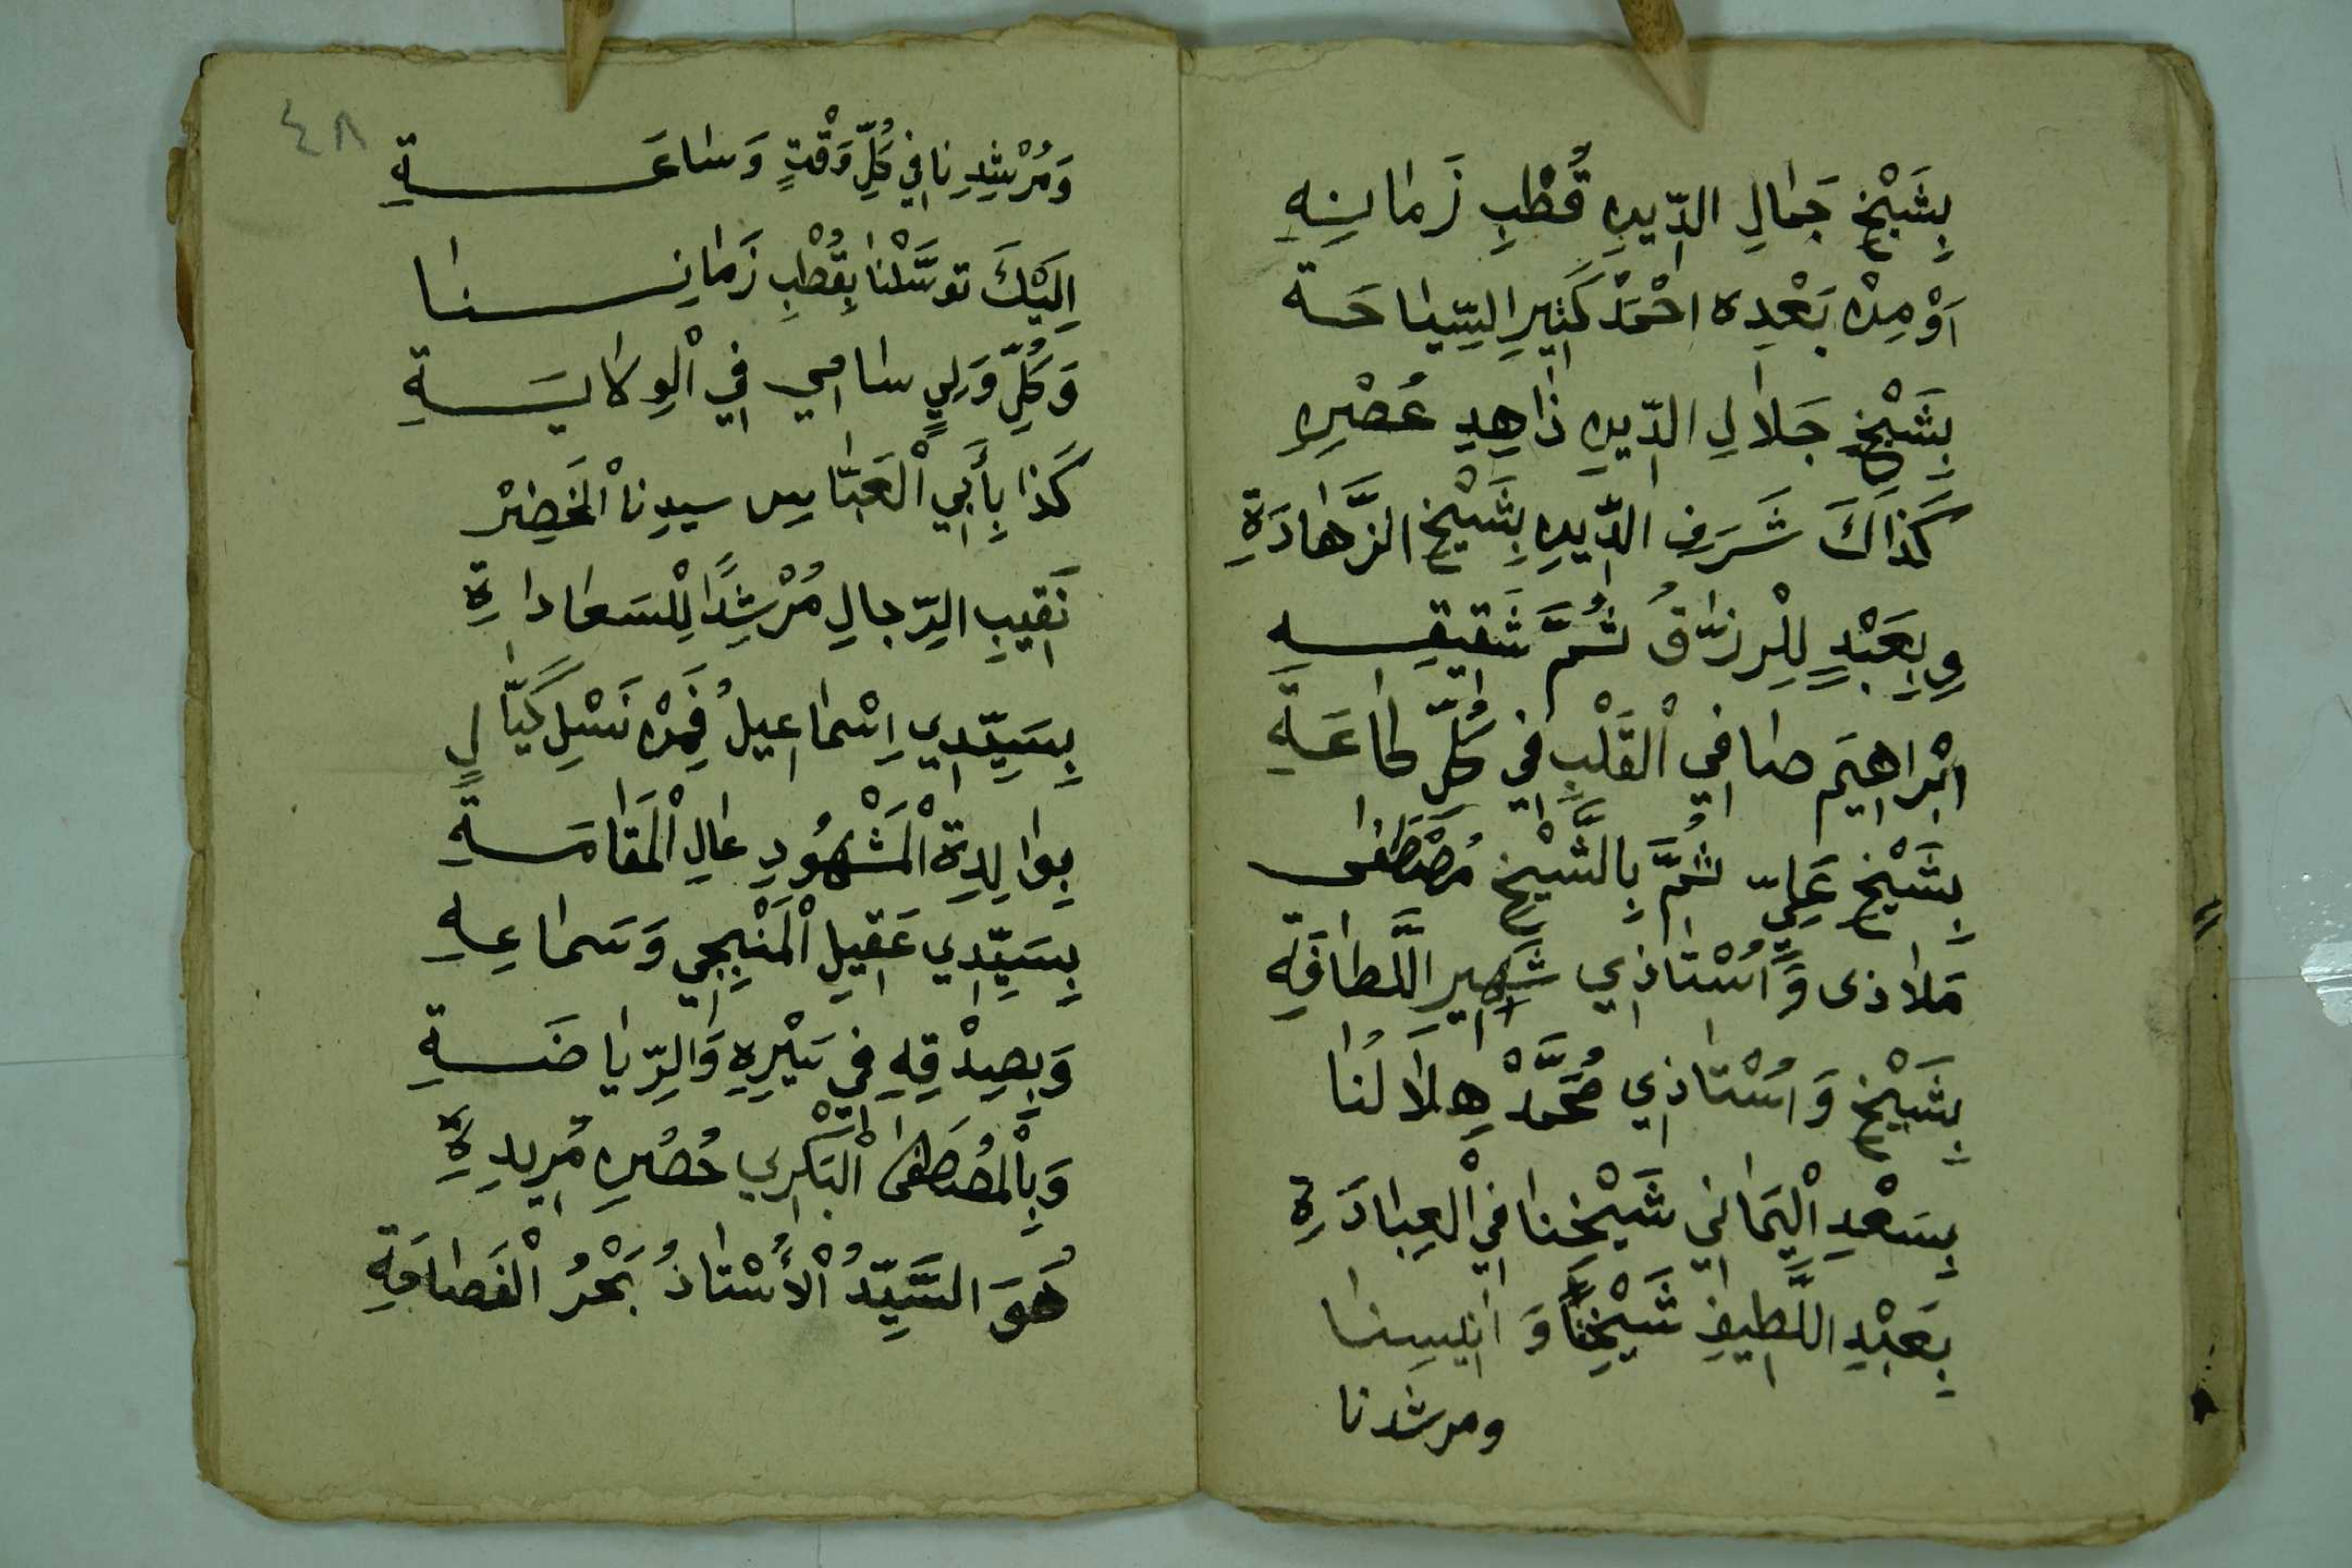 بِشَيْخِ جَمَالِ الدِّينِ قُطْبِ زَمَانِهِ
اَوْ مِنْ بَعْدِه احْمَدْ كَثِيرِ السِّيَاحَة
بِشَيْخِ جَلَالِ الدِّينِ زَاهِدِ عَصْرِهِ
كَذَاكَ شَرَفِ الدِّينِ بِشَيْخِ الزَّهَادَةِ
وِبِعَبْدٍ لِلْرزَّاقُ ثُمَّ شَقِيقِهِ
اِبْرَاهِيَم صَافِي الْقَلْبِ فِي كُلِّ طَاعَةِ
بِشَيْخِ عَلِيٍّ ثُمَّ بِالشَّيْخِ مُصْطَفَى
مَلَاذى وَاُسْتَاذِي شَهِيرِ اللَّطَافَةِ
بِشَيْخِ وَاُسْتَاذِي مُحَمَّدْ هِلَالُنَا
بِسَعْدِ الْيَمَانِي شَيْخِنَا فِي الْعِبَادَةِ
بِعَبْدِ اللَّطِيفِ شَيْخِنَا وَانِيسِنَا
ومرشدنا
٤٨
وَمُرْشِدِنَا فِي كُلِّ وَقْتٍ وَسَاعَةِ
اِلَيْكَ توسَّلْنَا بِقُطْبِ زَمَانِنَا
وَكُلِّ وَلِيٍ سَامِي فِي الْوِلَايَةِ
كَذَا بِأَبِي الْعَبَّاسِ سيدِنَا الْخَضِرْ
نَقِيبِ الرِّجالِ مُرْشِدًا لِلْسَعَادَاةِ
بِسَيِّدِي اِسْمَاعِيلُ فَمِنْ نَسْلِ كَيَّالٍ
بِوَالِدِةِ الْمَشْهُودِ عَالِ الْمَقَامَةِ
بِسَيِّدِي عَقِيلِ الْمَنْبِجِي وَسَمَاعِهِ
وَبِصِدْقِهِ فِي سَيْرِهِ وَالرِّيَاضَةِ
وَبِالْمُصْطَفَى الْبَكْرِي حُصُرِهِ مُرِيدِةِ
هُوَ السَّيِّدُ الْأُسْتَاذُ بَحْرُ الْفَصَاحَةِ